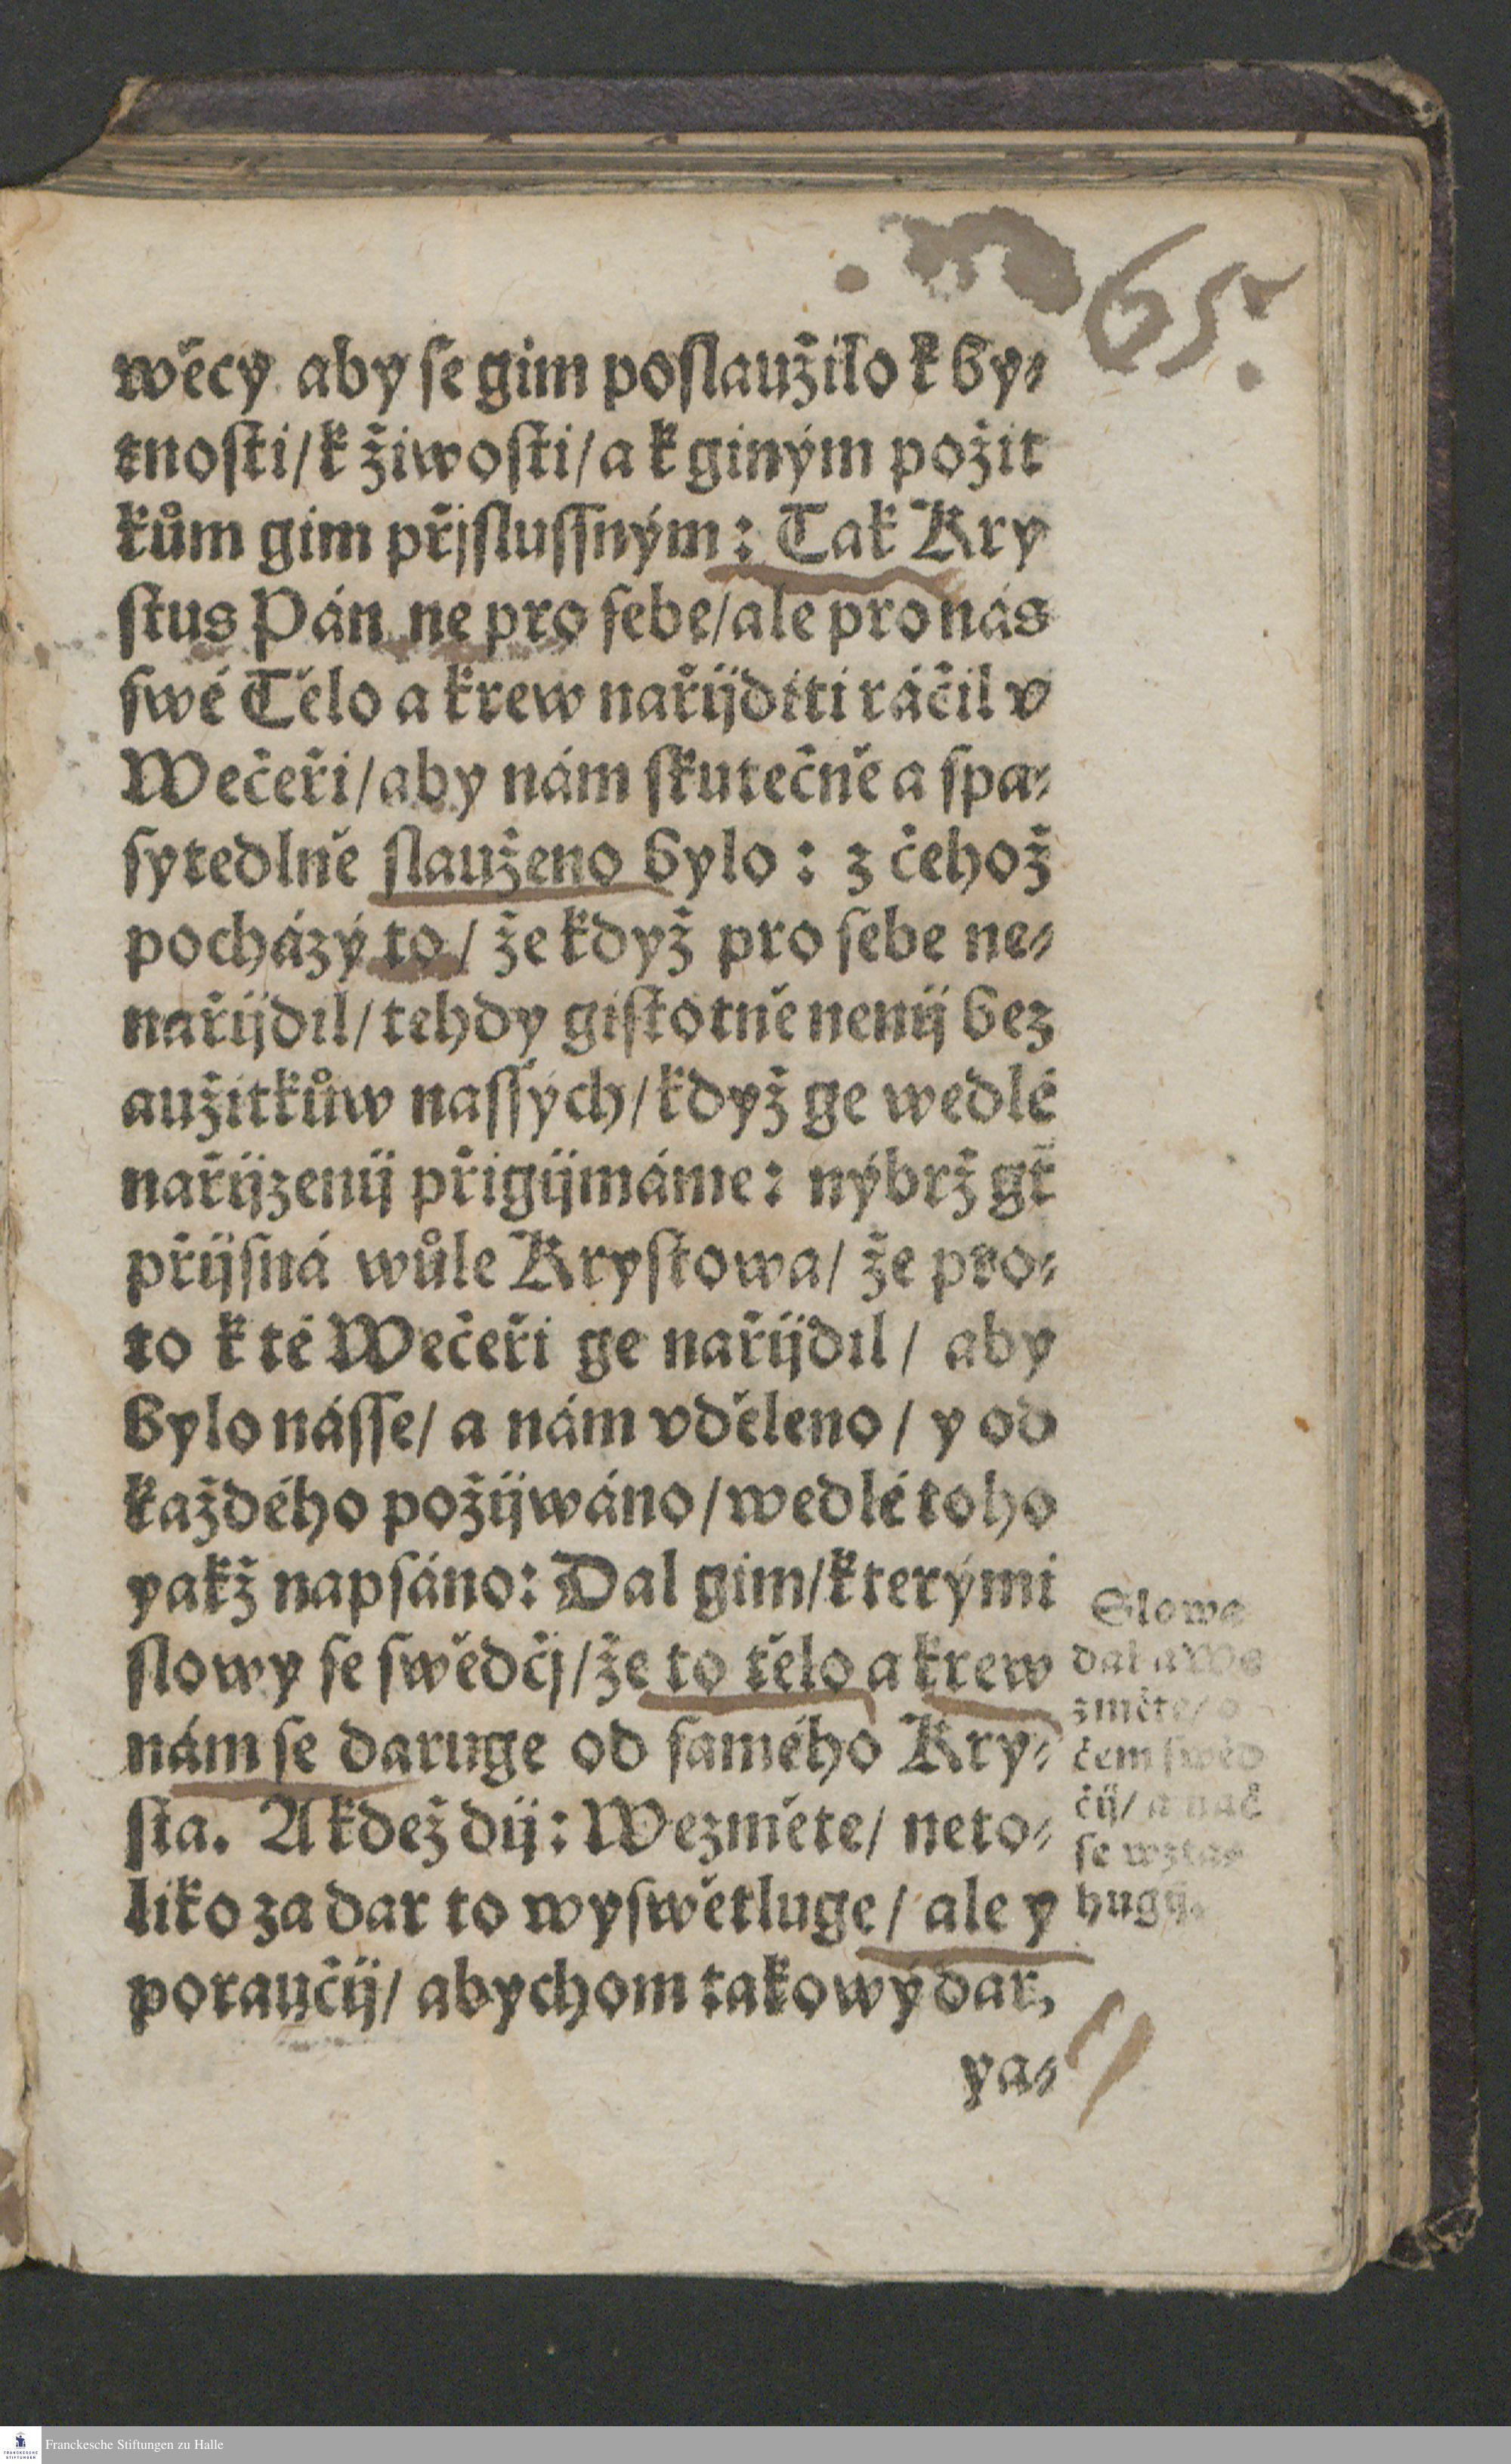 65.
wěcy aby ſe gim poſlaužilo k by⸗
tnoſti/ k žiwoſti/ a k giným požit
kům gim přjſluſſným: Tak Kry
ſtus Pán ne pro ſebe/ ale pro nás
ſwé Tělo a krew nařijditi ráčil v
Wečeři/ aby nám ſkutečně a ſpa⸗
ſytedlně ſlauženo bylo: z čehož
pocházý to/ že když pro ſebe ne⸗
nařijdil/ tehdy giſtotně nenij bez
aužitkůw naſſých/ když ge wedlé
nařijzenij přigijmáme: nýbrž gt̃
přijſná wůle Kryſtowa/ že pro⸗
to k té Wečeři ge nařijdil/ aby
bylo náſſe/ a nám vděleno/ y od
každého požijwáno/ wedlé toho
yakž napſáno: Dal gim/ kterými
ſlowy ſe ſwědčj/ že to tělo a krew
nám ſe daruge od ſamého Kry⸗
ſta. A kdež dij: Wezměte/ neto⸗
liko za dar to wyſwětluge/ ale y
poraučij/ abychom takowý dar,
ya⸗
Slowa
dal a We
změte/ o
čem ſwěd
čij/ a nač
ſe wzta⸗
hugij.
Franckesche Stiftungen zu Halle